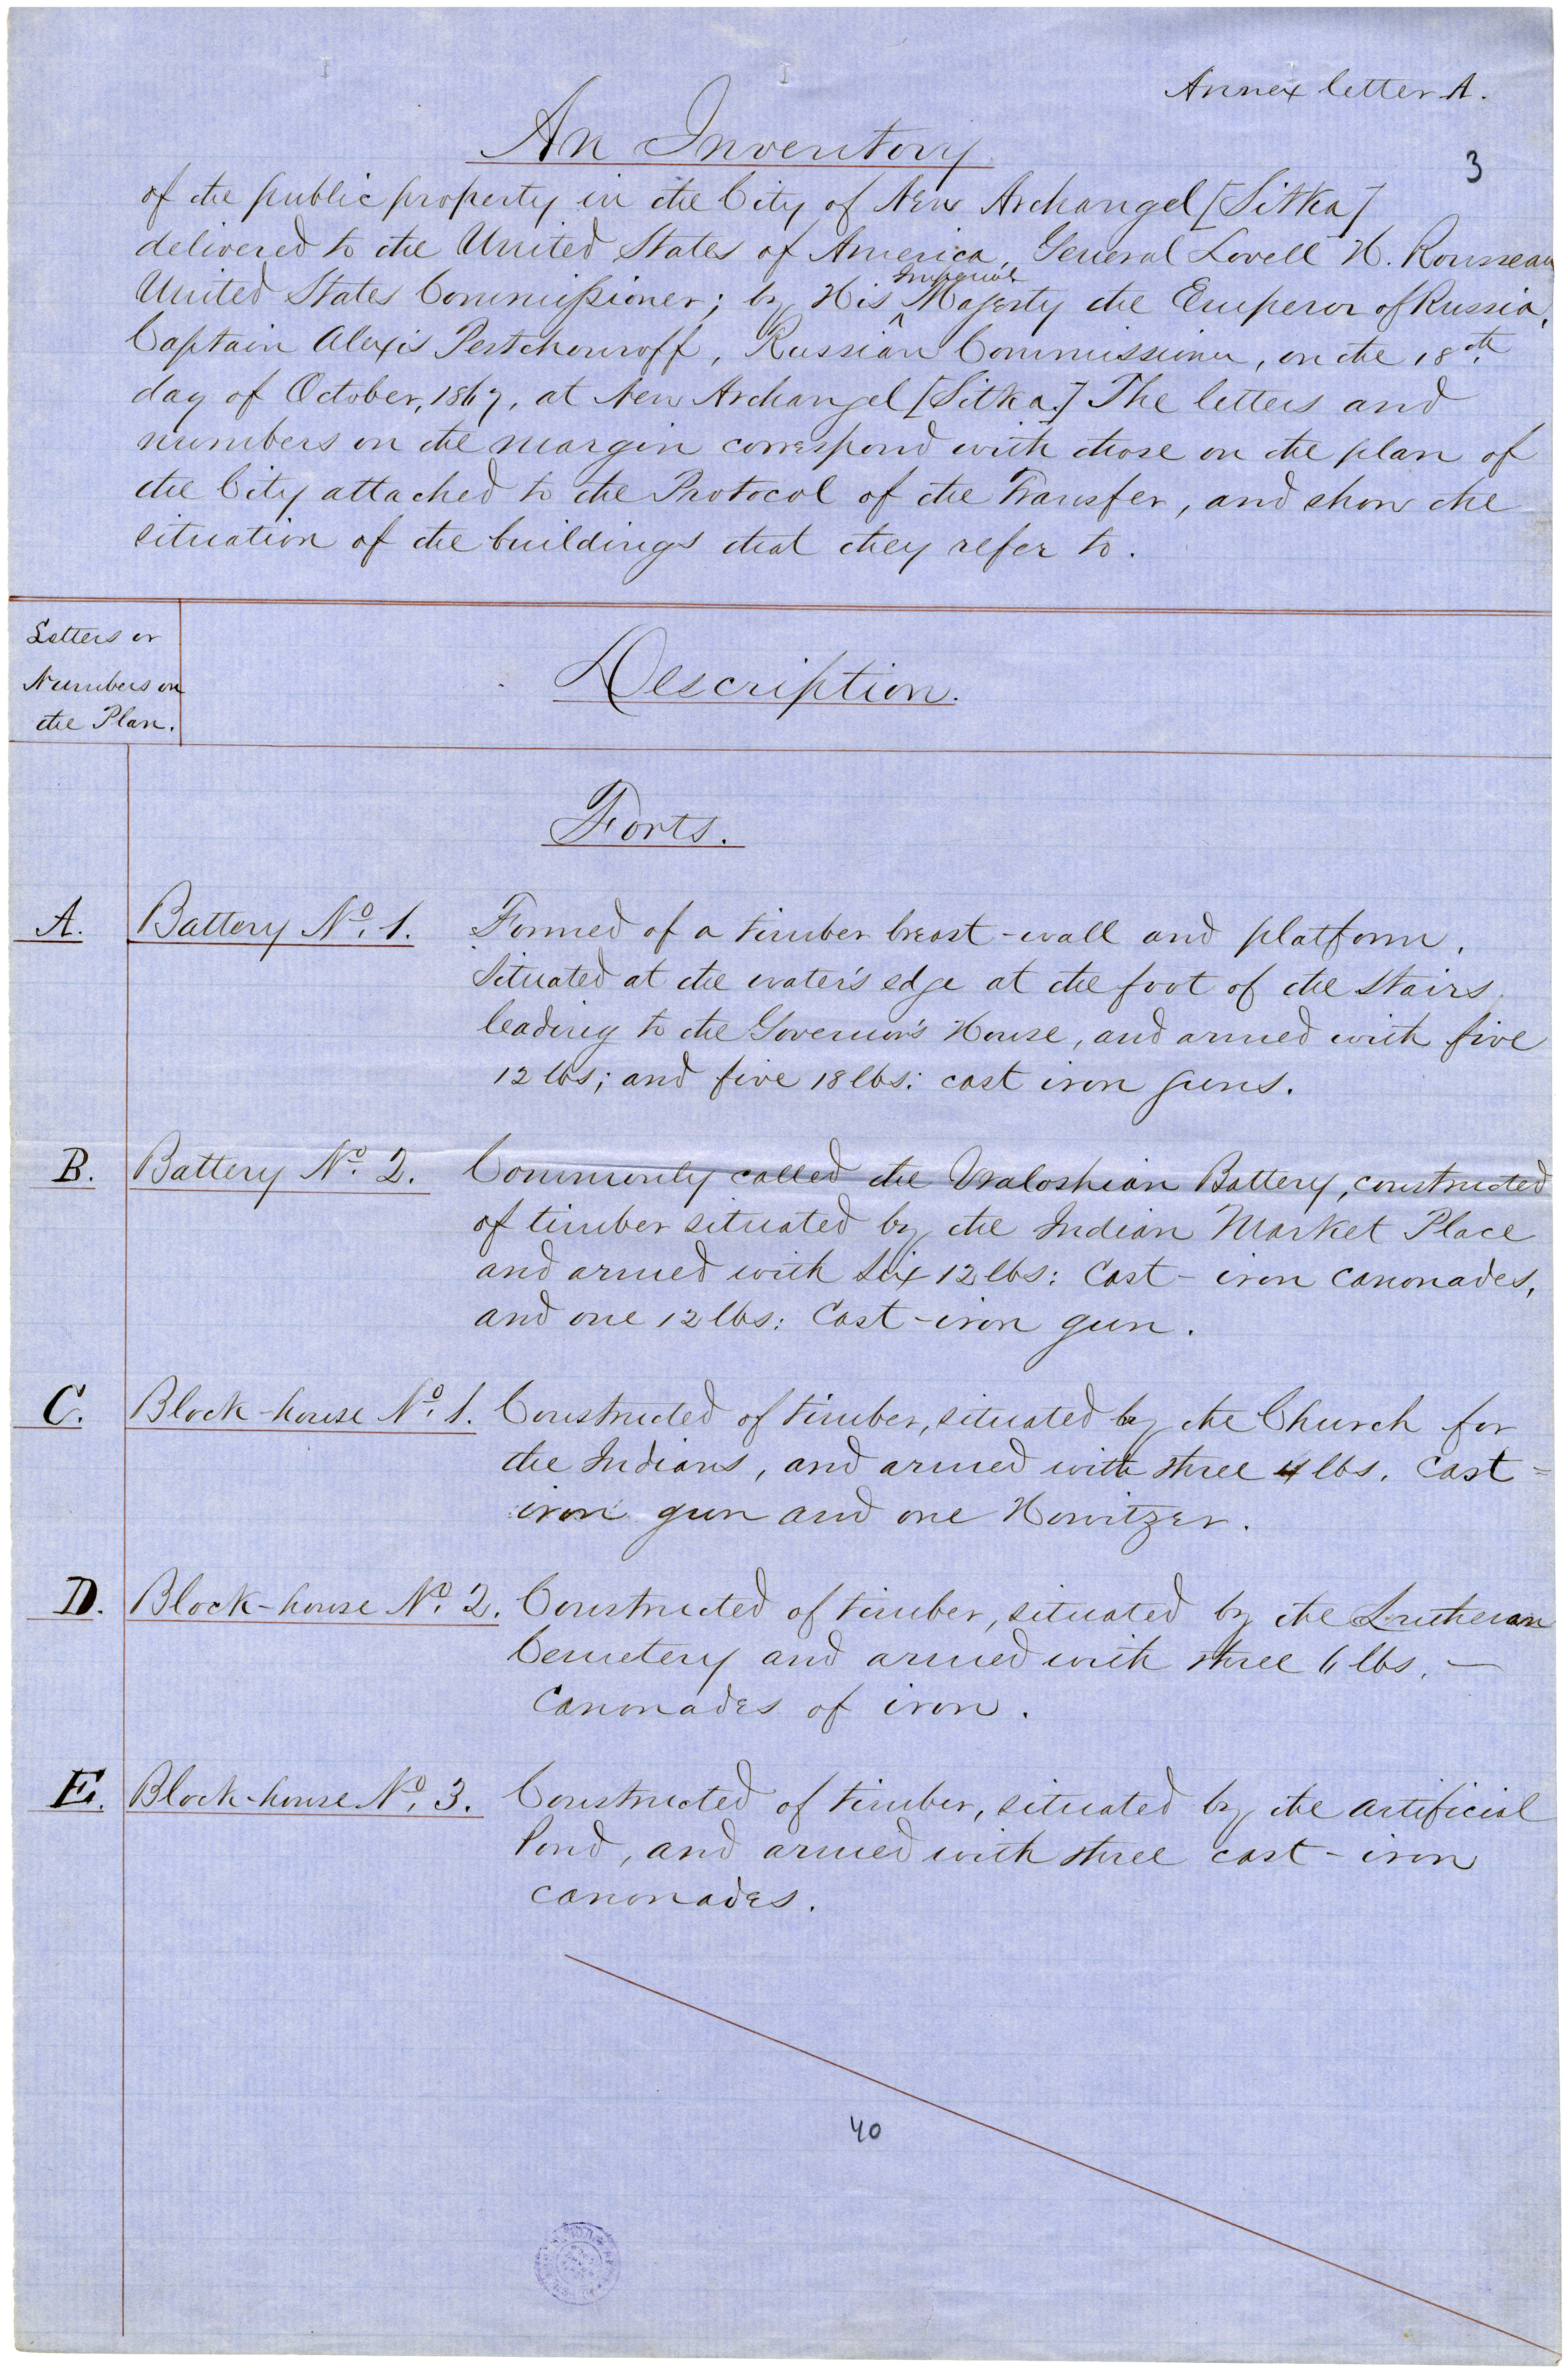 Annex letter A.
An Inventory
3
of the public property in the City of New Archangel [Sitka]
delivered to the United States of America, General Lovell H. Rousseau
United States Commissioner; by His Imperial Majesty the Emperor of Russia,
Captain Alexis Pestchouroff, Russian Commissioner, on the 18th
day of October, 1867, at New Archangel [Sitka.] The letters and
numbers on the margin correspond with those on the plan of
the City attached to the Protocol of the Transfer, and show the
situation of the buildings that they refer to.
Letters or
Numbers on
the Plan.
Description.
Forts.
A. Battery No. 1. Formed of a timber breast-wall and platform.
Situated at the water's edge at the foot of the Stairs
leading to the Governor's House, and armed with five
12 lbs; and five 18 lbs: cast iron guns.
B. Battery No. 2. Commonly called the Kaloshian Battery, constructed
of timber situated by the Indian Market Place
and armed with Six 12 lbs: Cast-iron canonades,
and one 12 lbs: Cast-iron gun.
C. Block-house No. 1. Constructed of timber, situated by the Church for
the Indians, and armed with three 4 lbs. Cast=
iron gun and one Howitzer.
D. Block-house No. 2. Constructed of timber, situated by the Lutheran
Cemetery and armed with three 6 lbs. —
Canonades of iron.
E. Block-house No. 3. Constructed of timber, situated by the artificial
Pond, and armed with three cast-iron
canonades.
40